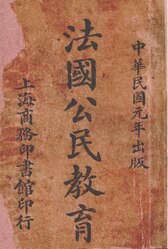 中華民國元年出版
法國公民教育
上海商務印書館印行